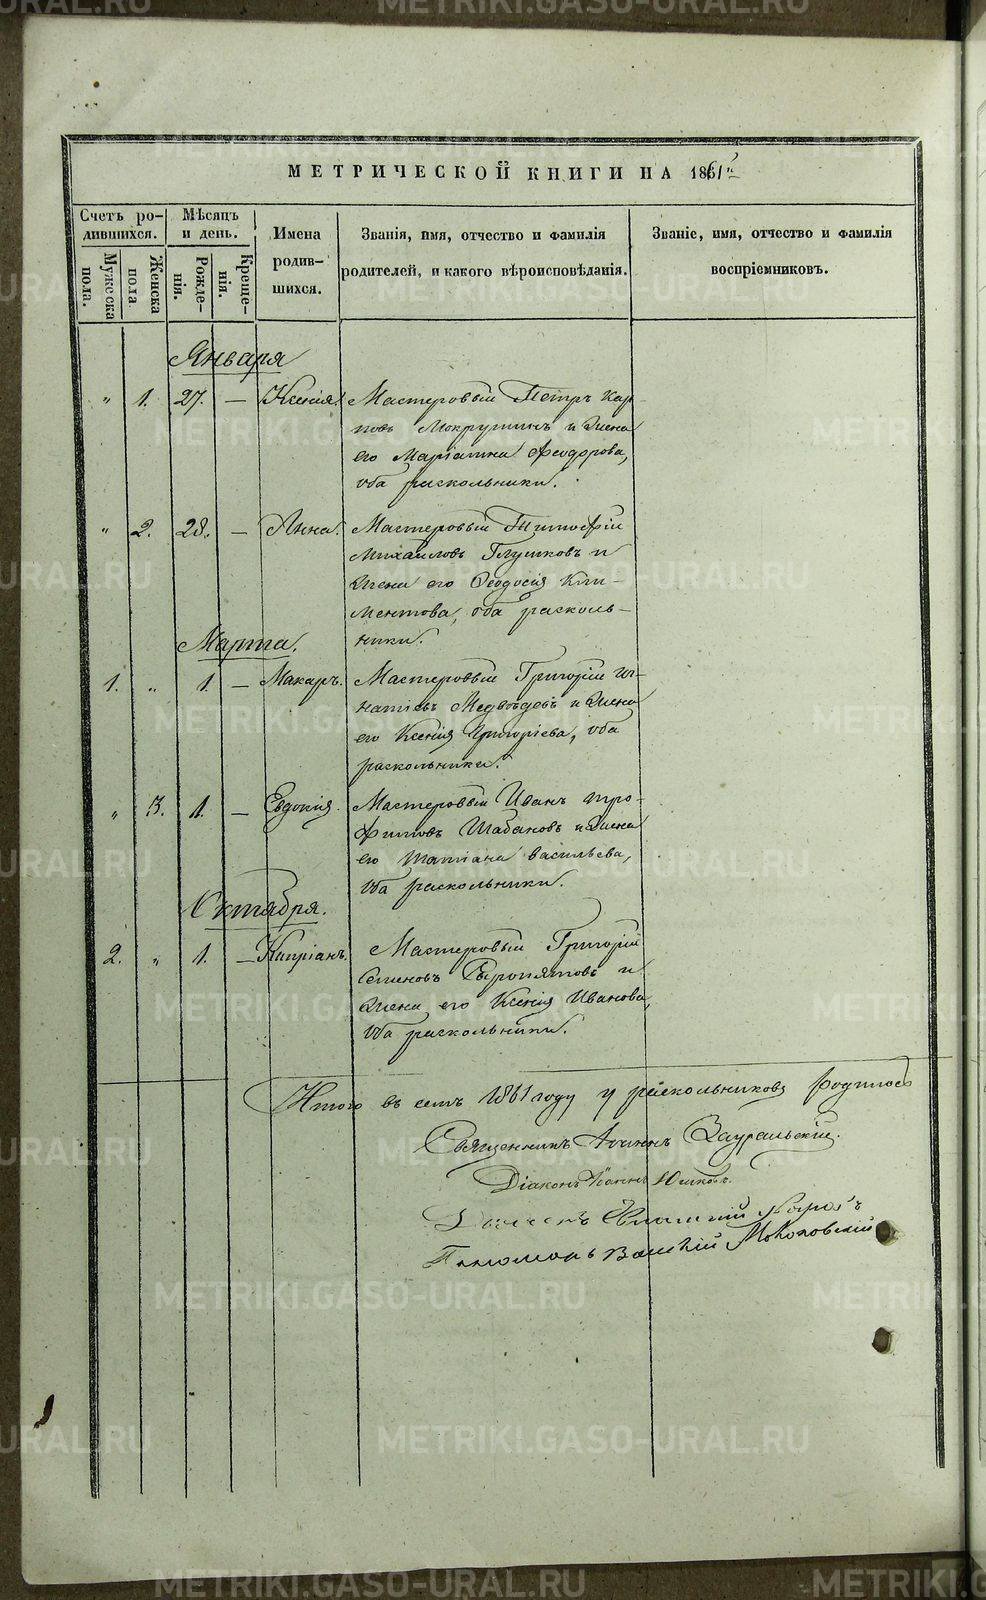 МЕТРИЧЕСКОЙ КНИГИ НА 1861й
Счетъ родившихся.
Мужеска пола.
Женска пола
Мѣсяцъ и день.
Рожденія.
Крещенія.
Имена родившихся.
Званія, имя, отчество и фамилія
родителей, и какого вѣроисповѣданія.
Званіе, имя, отчество и фамилія
воспріемниковъ.
Января
" 1. 27. — Ксенія. Мастеровый Петръ Кар-
повъ Мокрушинъ и жена
его Маріамна Феодорова,
оба раскольники.
" 2. 28. — Анна. Мастеровый Тимофѣй
Михайловъ Глушковъ и
жена его Феодосія Кли-
ментова, оба расколь-
ники.
Марта.
1. " 1. — Макаръ. Мастеровый Григорій Иг-
натьевъ Медвѣдевъ и жена
его Ксенія Григоріева, оба
раскольники.
" 3. 1. — Евдокія. Мастеровый Иванъ Тро-
фимовъ Шабановъ и жена
его Татіана Васильева,
оба раскольники.
Октября.
2. " 1. — Кипріанъ. Мастеровый Григорій
Семеновъ Сыропятовъ и
жена его Ксенія Иванова,
оба раскольники.
Итого въ семъ 1861 году у раскольниковъ родилось
Священникъ Іоаннъ Зауральскій.
Діаконъ Іоаннъ Юшковъ.
Дьячекъ Евгеній
Пономарь Василій
METRIKI.GASO-URAL.RU